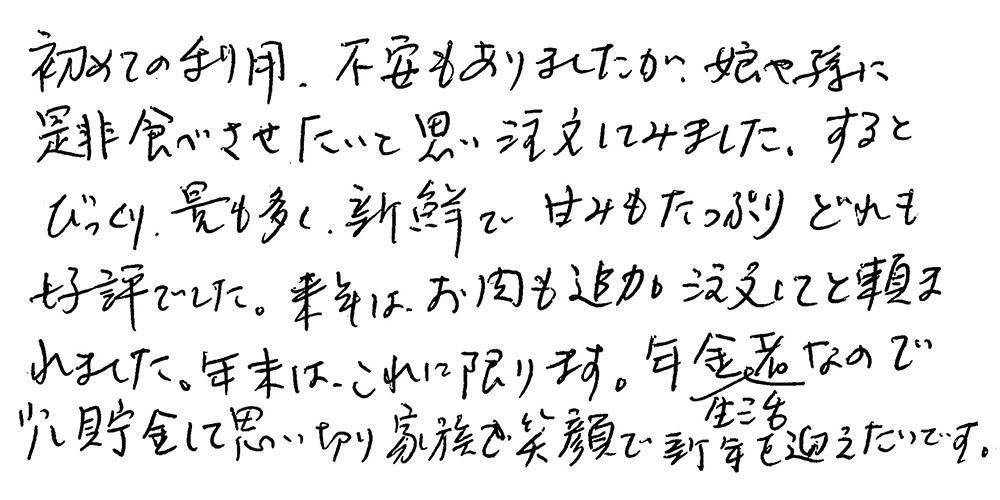 初めての利用、不安もありましたが、娘や孫に
是非食べさせたいと思い注文してみました、すると
びっくり、量も多く、新鮮で甘みもたっぷりどれも
好評でした。来年は、お肉も追加注文してと頼ま
れました。年末は、これに限ります。年金生活者なので
少し貯金して思い切り家族で笑顔で新年を迎えたいです。